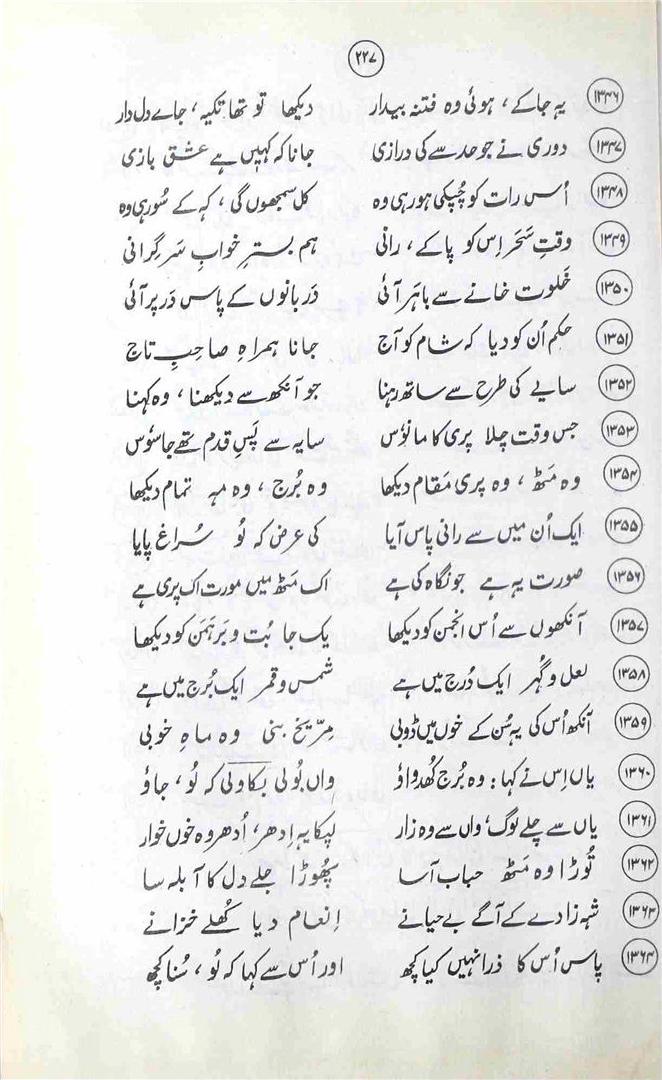 ۲۲۷
۱۳۴۶ یہ جاکے، ہوئی وہ فتنہ بیدار دیکھا تو تھا تکیہ، جاے دل دار
۱۳۴۷ دوری نے جو حد سے کی درازی جانا کہ کہیں ہے عشق بازی
۱۳۴۸ اُس رات کو چُپکی ہو رہی وہ کل سمجھوں گی، کہ کے سُو رہی وہ
۱۳۴۹ وقتِ سَحَر اِس کو پاکے، رانی ہم بسترِ خوابِ سَر گِرانی
۱۳۵۰ خَلوت خانے سے باہَر آئی دَربانوں کے پاس دَر پر آئی
۱۳۵۱ حکم اُن کو دیا کہ شام کو آج جانا ہمراہِ صاحبِ تاج
۱۳۵۲ سایے کی طرح سے ساتھ رہنا جو آنکھ سے دیکھنا، وہ کہنا
۱۳۵۳ جس وقت چلا پری کا مانوٗس سایہ سے پَسِ قدم تھے جاسوٗس
۱۳۵۴ وہ مَٹھ، وہ پری مَقام دیکھا وہ بُرج، وہ مہِ تمام دیکھا
۱۳۵۵ ایک اُن میں سے رانی پاس آیا کی عرض کہ لُو سُراغ پایا
۱۳۵۶ صورت یہ ہے جو نگاہ کی ہے اک مَٹھ میں مورت اک پری ہے
۱۳۵۷ آنکھوں سے اُس انجمن کو دیکھا یک جا بُت و بَرہَمَن کو دیکھا
۱۳۵۸ لعل و گُہر ایک دُرج میں ہے شمس و قمر ایک بُرج میں ہے
۱۳۵۹ آنکھ اُس کی یہ سُن کے خوں میں ڈوبی مِرّیخ بنی وہ ماہِ خوبی
۱۳۶۰ یاں اِس نے کہا: وہ بُرج کُھدواوٗ واں بُولی بکاولی کہ لُو، جاوٗ
۱۳۶۱ یاں سے چلے لوگ، واں سے وہ زار لپکا یہ اِدھر، اُدھر وہ خوں خوار
۱۳۶۲ تُوڑا وہ مَٹھ حباب آسا پُھوڑا جلے دل کا آبلہ سا
۱۳۶۳ شہ زادے کے آگے بے حیا نے اِنعام دیا کُھلے خزانے
۱۳۶۴ پاس اُس کا ذرا نہیں کیا کچھ اور اُس سے کہا کہ لُو، سُنا کچھ